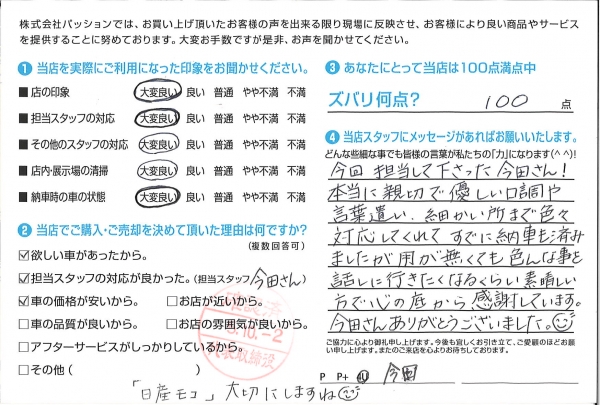 株式会社パッションでは、お買い上げ頂いたお客様の声を出来る限り現場に反映させ、お客様により良い商品やサービス
を提供することに努めております。大変お手数ですが是非、お声を聞かせてください。
① 当店を実際にご利用になった印象をお聞かせください。
■ 店の印象 大変良い 良い 普通 やや不満 不満
■ 担当スタッフの対応 大変良い 良い 普通 やや不満 不満
■ その他のスタッフの対応 大変良い 良い 普通 やや不満 不満
■ 店内・展示場の清掃 大変良い 良い 普通 やや不満 不満
■ 納車時の車の状態 大変良い 良い 普通 やや不満 不満
② 当店でご購入・ご売却を決めて頂いた理由は何ですか?
(複数回答可)
☑欲しい車があったから。
☑担当スタッフの対応が良かった。(担当スタッフ 今田さん)
☑車の価格が安いから。 □お店が近いから。
□車の品質が良いから。 □お店の雰囲気が良いから。
□アフターサービスがしっかりしているから。
□その他 (
「日産モコ」大切にしますね
確認済
5.10.-2
代表取締役
③ あなたにとって当店は100点満点中
ズバリ何点? 100 点
④ 当店スタッフにメッセージがあればお願いいたします。
どんな些細な事でも皆様の言葉が私たちの「力」になります(^ ^)!
今回担当して下さった今田さん!
本当に親切で優しい口調や
言葉遣い、細かい所まで色々
対応してくれて すでに納車も済み
ましたが用が無くても色んな事を
話しに行きたくなるくらい素晴しい
方で心の底から感謝しています。
今田さんありがとうございました。
ご協力に心より御礼申し上げます。今後も宜しくお引き立て、ご愛顧のほどお願
い申し上げます。またのご来店を心よりお待ちしております。
P P+ 4U 今田